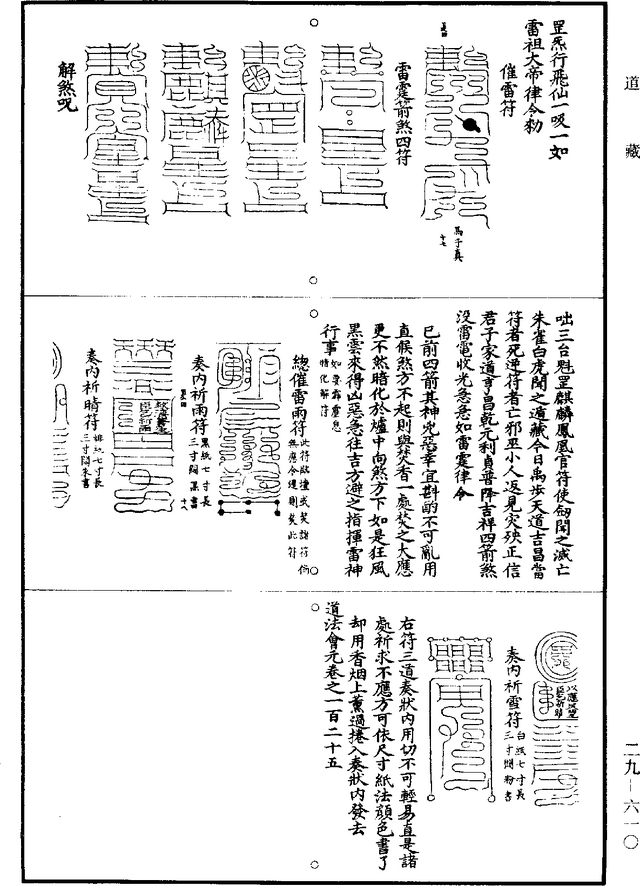 道藏
罡炁行飛仙一吸一如
雷祖大帝律令勑
催雷符
馬子真
十七
雷霆箭煞四符
解煞呪
咄三台魁罡麒麟鳳凰官符使劒聞之滅亡
朱雀白虎聞之遁藏今日禹步天道吉昌當
符者死逆符者亡邪巫小人返見灾殃正信
君子家道亨昌乾元利貞普降吉祥四箭煞
没雷電收光急急如雷霆律令
已前四箭其神兇惡宰宜斟酌不可亂用
直候煞方不起則與焚香一處焚之大應
更不然暗化於爐中向煞方下如是狂風
黑雲來得凶惡急往吉方避之指揮雷神
行事如要霹靂息暗化解符
總催雷雨符此符啟壇或焚諸符倘無應令違則焚此符
奏内祈雨符黑紙七寸長三寸闊黑書
十八
奏内祈晴符緋紙七寸長三寸闊朱書
奏内祈雪符白紙七寸長三寸闊粉書
右符三道奏狀内用切不可輕易直是諸
處祈求不應方可依尺寸紙法顔色書了
却用香烟上薰過捲入奏狀内發去
道法會元卷之一百二十五
二九—六一〇